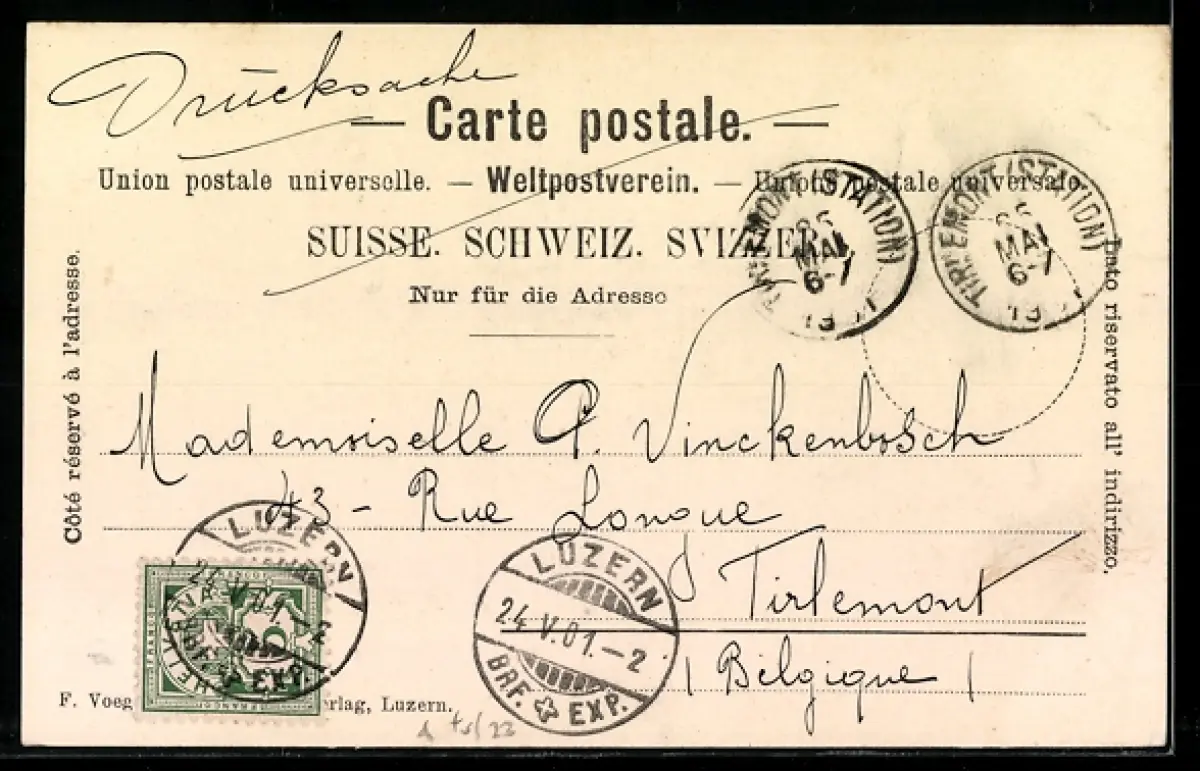 Drucksache
— Carte postale. —
Union postale universelle. — Weltpostverein. — Unione postale universale.
SUISSE. SCHWEIZ. SVIZZERA.
Nur für die Adresse
Côté réservé à l'adresse.
Lato riservato all' indirizzo.
TIRLEMONT (STATION)
MAI
6-7
TIRLEMONT (STATION)
MAI
6-7
Mademoiselle Vinckenbosch
43 - Rue Longue
Tirlemont
(Belgique)
LUZERN
24.V.01.-2
BRF. EXP.
LUZERN
24.V.01.-2
BRF. EXP.
FRANCO
HELVETIA
5
F. Voeg rlag, Luzern.